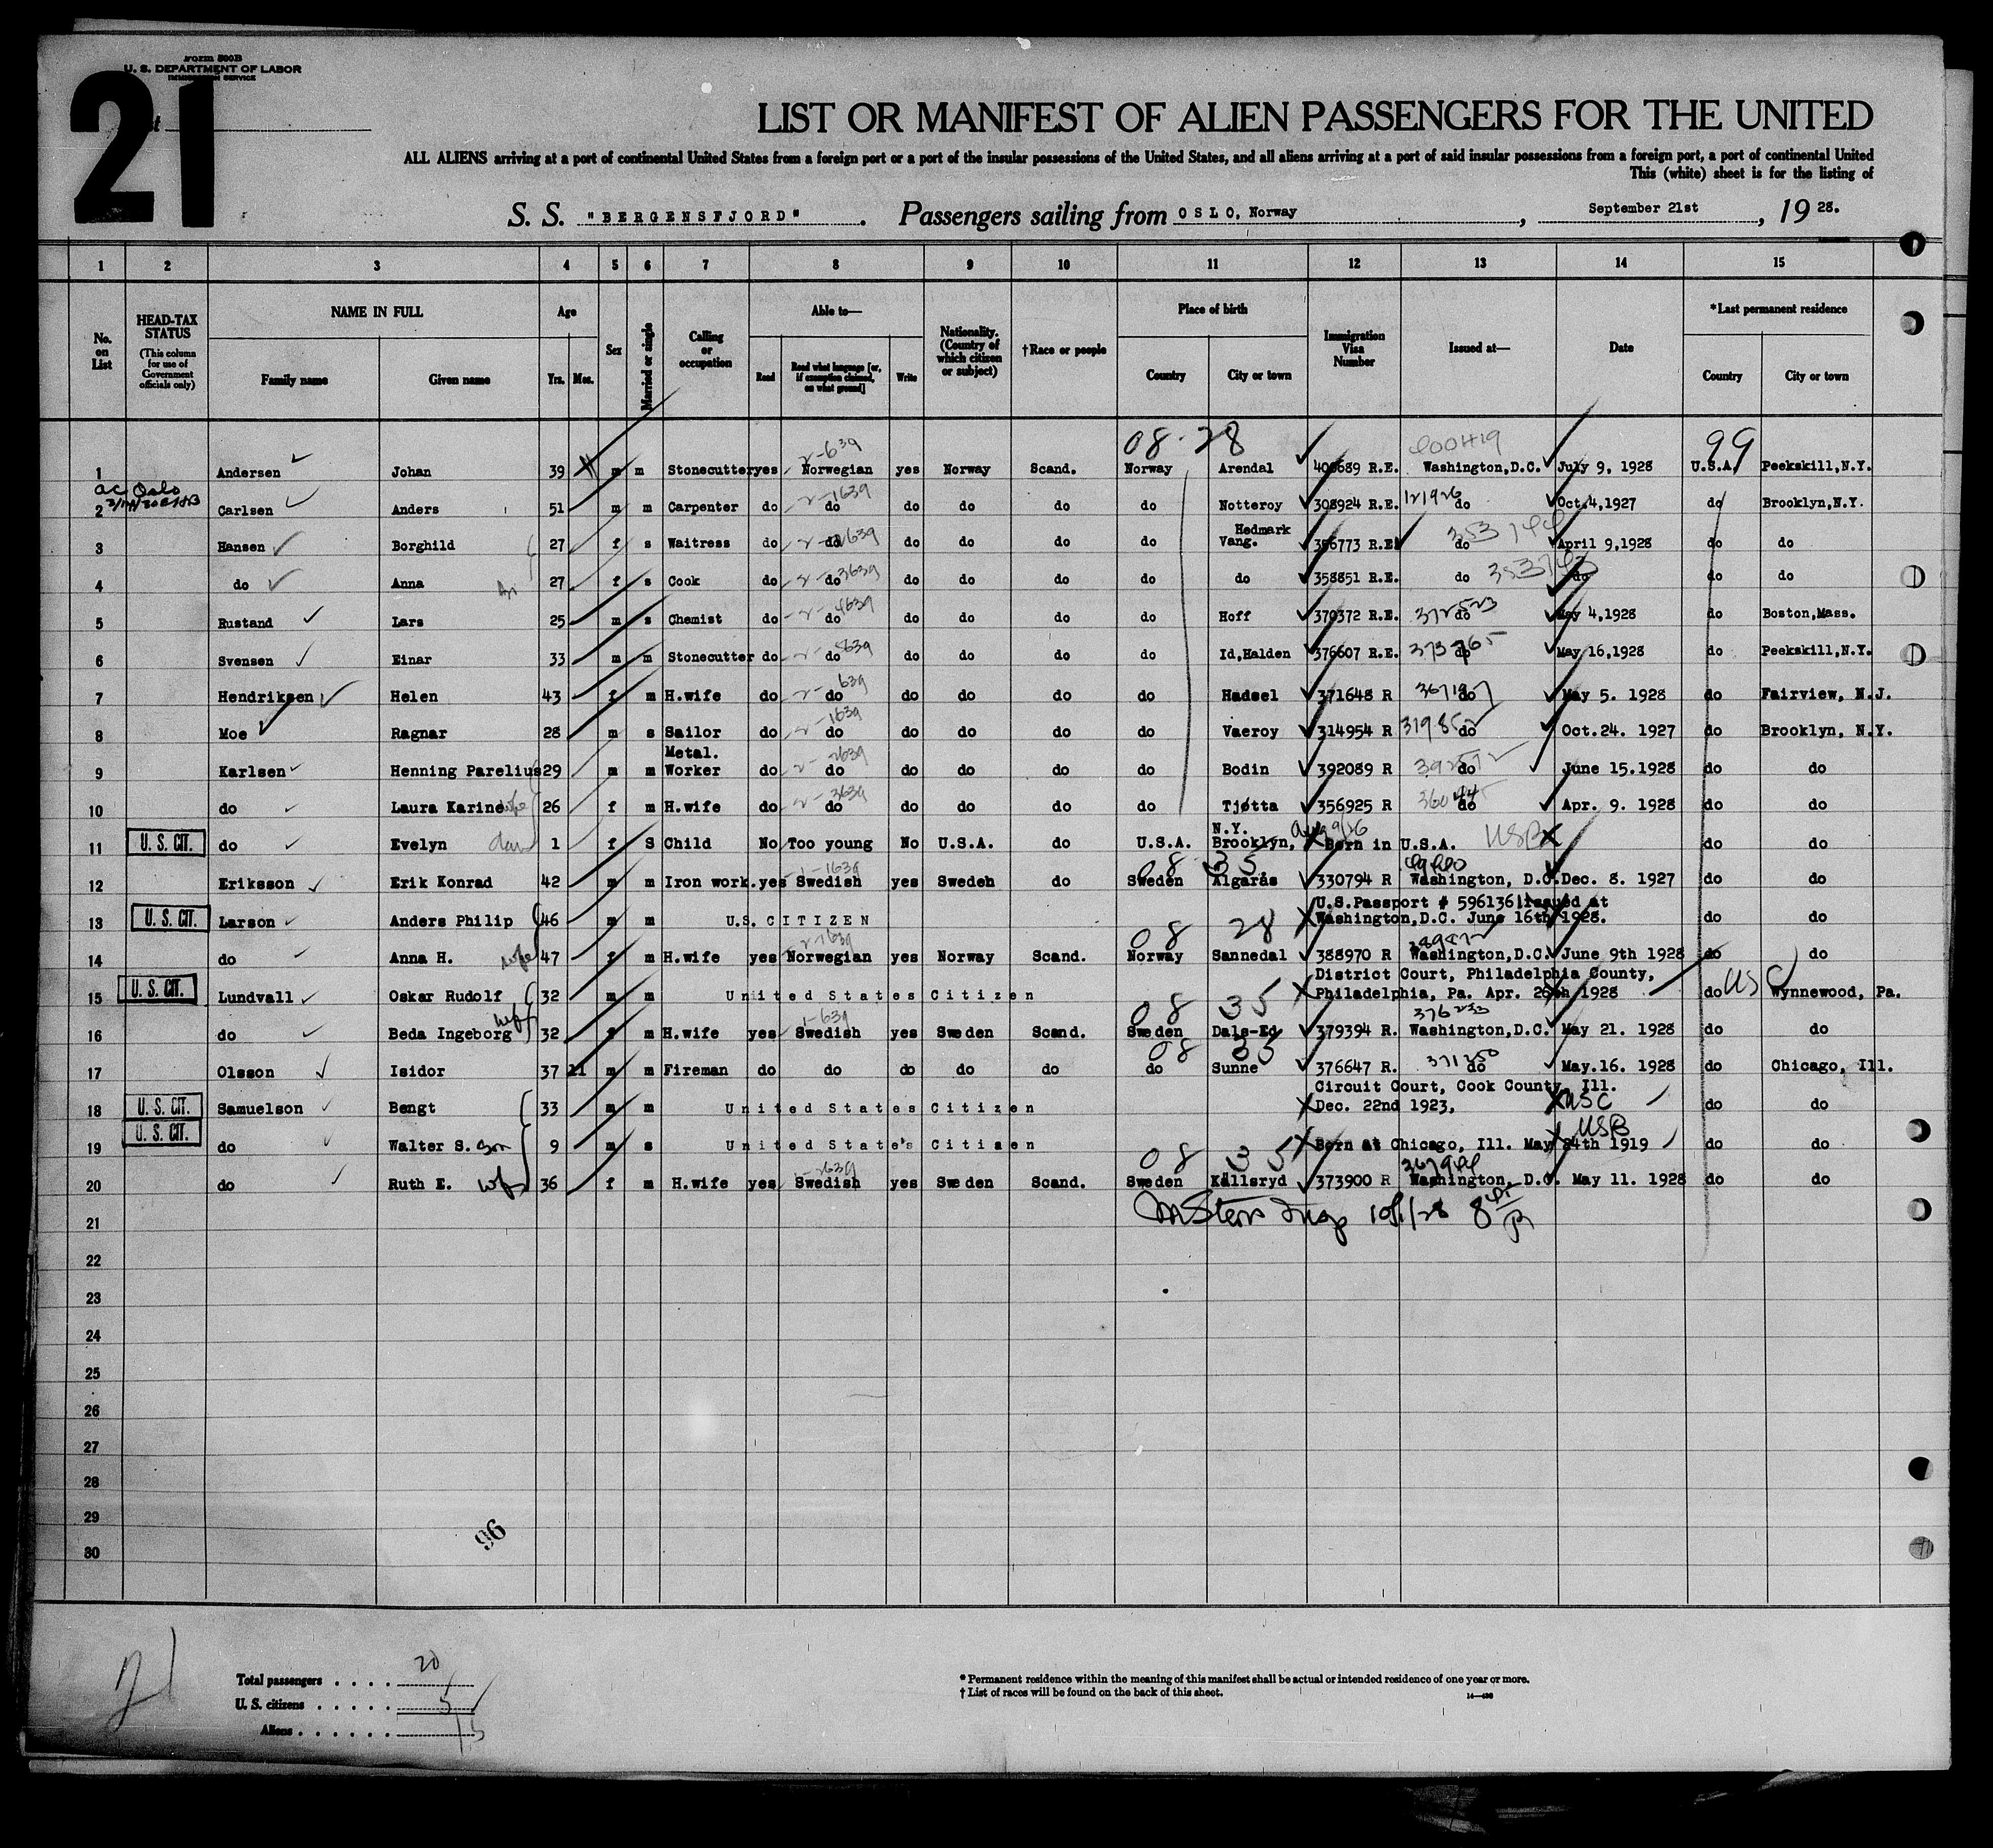 Form 500B
U. S. DEPARTMENT OF LABOR
IMMIGRATION SERVICE
21
LIST OR MANIFEST OF ALIEN PASSENGERS FOR THE UNITED
ALL ALIENS arriving at a port of continental United States from a foreign port or a port of the insular possessions of the United States, and all aliens arriving at a port of said insular possessions from a foreign port, a port of continental United
This (white) sheet is for the listing of
S. S. "BERGENSFJORD". Passengers sailing from OSLO, Norway, September 21st, 19 28.
1 2 3 4 5 6 7 8 9 10 11 12 13 14 15
No. on List HEAD-TAX STATUS (This column for use of Government officials only) NAME IN FULL Family name Given name Age Yrs. Mos. Sex Married or single Calling or occupation Able to— Read Read what language [or, if exemption claimed, on what ground] Write Nationality. (Country of which citizen or subject) †Race or people Place of birth Country City or town Immigration Visa Number Issued at— Date *Last permanent residence Country City or town
08-28 400419 99
1 Andersen Johan 39 m m Stonecutter yes Norwegian yes Norway Scand. Norway Arendal R.E. Washington,D.C. July 9, 1928 U.S.A. Peekskill,N.Y.
2 Carlsen Anders 51 m m Carpenter do do do do do do Notteroy 308924 R.E. do Oct.4,1927 do Brooklyn,N.Y.
3 Hansen Borghild 27 f s Waitress do do do do do do Hedmark Vang. 356773 R.E. do April 9,1928 do do
4 do Anna 27 f s Cook do do do do do do do 358851 R.E. do do do do
5 Rustand Lars 25 m s Chemist do do do do do do Hoff 370372 R.E. do May 4,1928 do Boston,Mass.
6 Svensen Einar 33 m m Stonecutter do do do do do do Id,Halden 376607 R.E. do May 16,1928 do Peekskill,N.Y.
7 Hendriksen Helen 43 f m H.wife do do do do do do Hadsel 371648 R do May 5. 1928 do Fairview, N.J.
8 Moe Ragnar 28 m s Sailor do do do do do do Vaeroy 314954 R do Oct.24. 1927 do Brooklyn, N.Y.
9 Karlsen Henning Parelius 29 m m Metal. Worker do do do do do do Bodin 392089 R do June 15.1928 do do
10 do Laura Karine wife 26 f m H.wife do do do do do do Tjøtta 356925 R do Apr. 9. 1928 do do
11 U. S. CIT. do Evelyn dau 1 f S Child No Too young No U.S.A. do U.S.A. N.Y. Brooklyn, Born in U.S.A. USB do do
08 35
12 Eriksson Erik Konrad 42 m m Iron work. yes Swedish yes Swedeh do Sweden Algarås 330794 R Washington, D.C. Dec. 8. 1927 do do
13 U. S. CIT. Larson Anders Philip 46 m m U.S. CITIZEN U.S.Passport # 596136 issued at Washington,D.C. June 16th 1928. do do
08 28
14 do Anna H. wife 47 f m H.wife yes Norwegian yes Norway Scand. Norway Sannedal 388970 R Washington,D.C. June 9th 1928 do do
15 U. S. CIT. Lundvall Oskar Rudolf 32 m m United States Citizen District Court, Philadelphia County, Philadelphia, Pa. Apr. 26th 1928 do USC Wynnewood, Pa.
08 35
16 do Beda Ingeborg wife 32 f m H.wife yes Swedish yes Sweden Scand. Sweden Dals-Ed 379394 R. Washington,D.C. May 21. 1928 do do
08 35
17 Olsson Isidor 37 11 m m Fireman do do do do do do Sunne 376647 R. do May.16. 1928 do Chicago, Ill.
18 U. S. CIT. Samuelson Bengt 33 m m United States Citizen Circuit Court, Cook County, Ill. Dec. 22nd 1923. USC do do
19 U. S. CIT. do Walter S. son 9 m s United State's Citizen Born at Chicago, Ill. May 24th 1919 USB do do
08 35
20 do Ruth E. wife 36 f m H.wife yes Swedish yes Sweden Scand. Sweden Källsryd 373900 R Washington, D.C. May 11. 1928 do do
21
22
23
24
25
26
27
28
29
30
96
21
Total passengers . . . . 20
U. S. citizens . . . . . 5
Aliens . . . . . . 15
* Permanent residence within the meaning of this manifest shall be actual or intended residence of one year or more.
† List of races will be found on the back of this sheet.